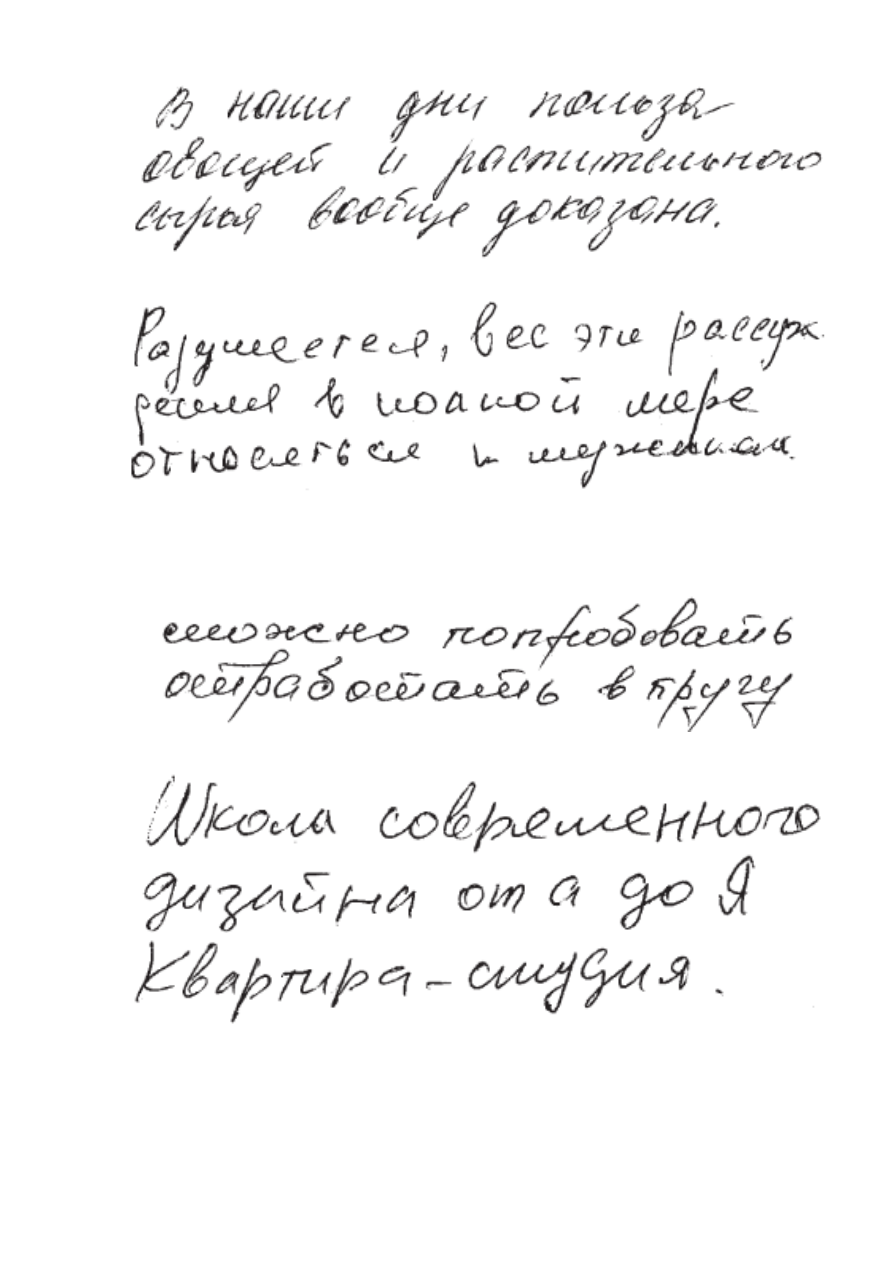 В наши дни польза
овощей и растительного
сырья вообще доказана.
Разумеется, все эти рассуж
дения в полной мере
относяться к мужчинам.
можно попробовать
отработать в кругу
Школа современного
дизайна от а до Я
Квартира-студия.